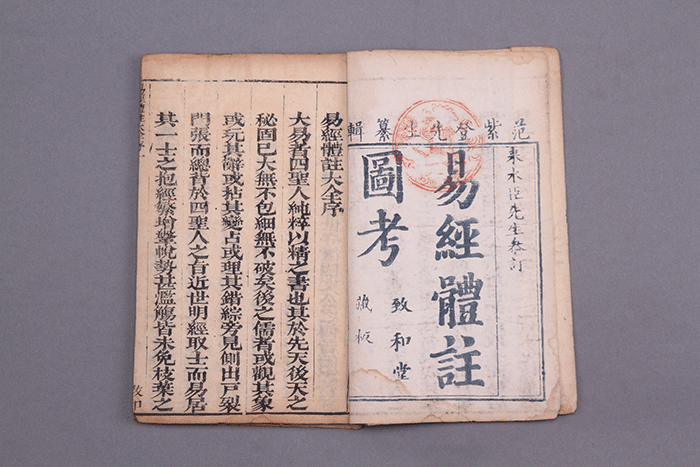 范紫登先生纂輯
來木臣先生叅訂
易經體註
圖考
致和堂
藏板
易經體註大全序
大易者四聖人純粹以精之書也其於先天後天之
秘固已大無不包細無不破矣後之儒者或觀其象
或玩其辭或粘其變占或理其錯綜旁見側出戸裂
門張而總背於四聖人之旨近世明經取士而易居
其一士之抱經繁增鞶帨勢甚濫觴皆未免枝葉之